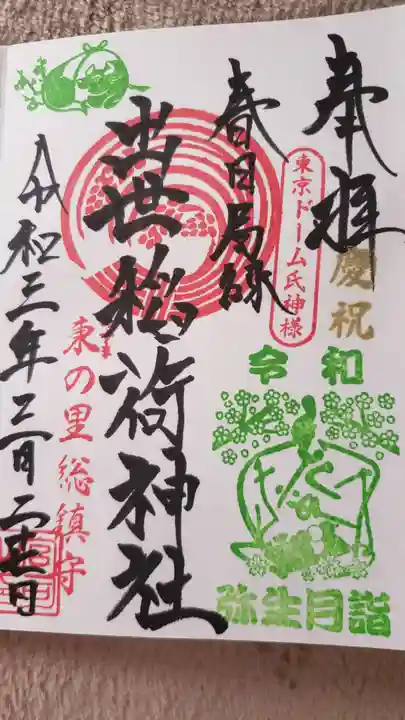 奉拝
慶祝
東京ドーム氏神様
令和
弥生月詣
春日局縁
出世稲荷神社
東の里総鎮守
令和三年三月二十七日